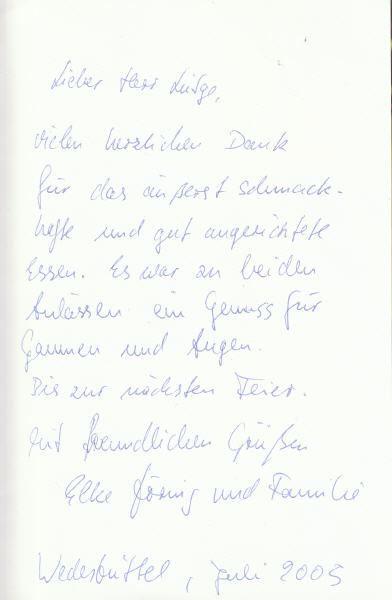 Lieber Herr Lütge,
vielen herzlichen Dank
für das äußerst schmack-
hafte und gut angerichtete
Essen. Es war an beiden
Anlässen ein Genuss für
Gaumen und Augen.
Bis zur nächsten Feier.
Mit freundlichen Grüßen
Elke und Familie
Wedesbüttel, Juli 2005